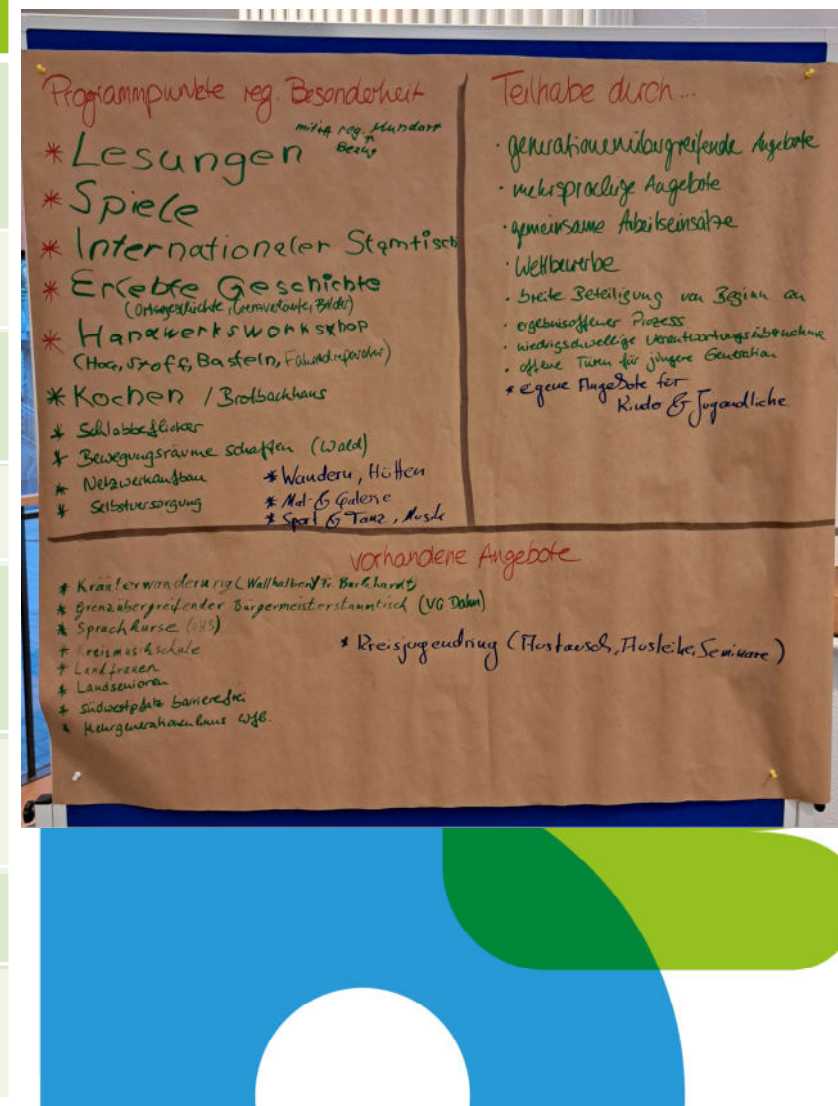 Programmpunkte reg. Besonderheit
mit reg. Mundart
Bezug
* Lesungen
* Spiele
* Internationaler Stamtisch
* Erlebte Geschichte
(Ortsgeschichte, Bilder)
* Handwerksworkshop
(Holz, Stoff, Basteln, Fahrradreparatur)
* Kochen / Brotbackhaus
* Schlabbeflicker
* Bewegungsräume schaffen (Wald)
* Netzwerkaufbau
* Selbstversorgung
* Wandern, Hütten
* Mal- & Galerie
* Sport & Tanz, Musik
Teilhabe durch...
· generationenübergreifende Angebote
· mehrsprachige Angebote
· gemeinsame Arbeitseinsätze
· Wettbewerbe
· breite Beteiligung von Beginn an
· ergebnisoffener Prozess
· niedrigschwellige Verantwortungsübernahme
· offene Türen für jüngere Generation
* egene Angebote für
Kinder & Jugendliche
vorhandene Angebote
* Kräuterwanderung (Wallhalben/Fr. Burkhardt)
* Grenzübergreifender Bürgermeisterstammtisch (VG Dahn)
* Sprachkurse (VHS)
+ Kreismusikschule
+ Landfrauen
* Landsenioren
* Südwestpfalz barrierefrei
* Mehrgenerationenhaus Wfb.
* Kreisjugendring (Austausch, Ausleihe, Seminare)